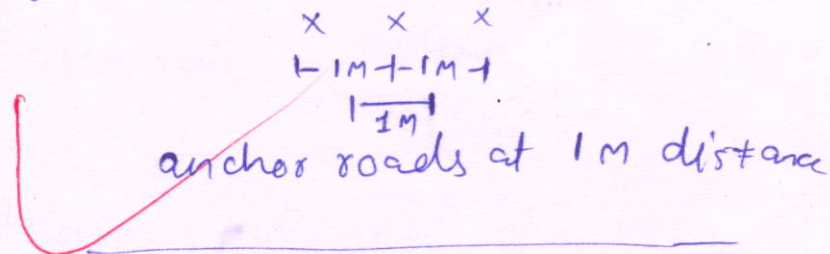 x x x
1M 1M
1M
anchor roads at 1M distance